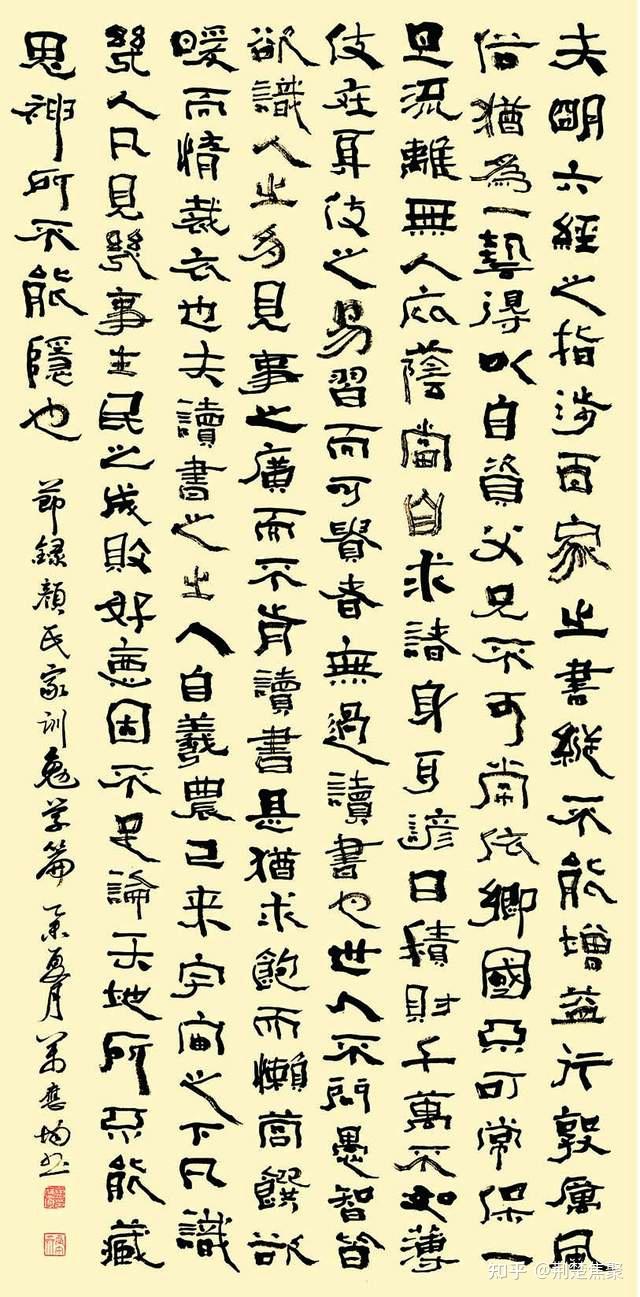 夫明六經之指涉百家之書縱不能增益行敦厲風
俗猶為一藝得以自資父兄不可常依鄉國不可常保一
旦流離無人庇蔭當自求諸身耳諺曰積財千萬不如薄
伎在身伎之易習而可貴者無過讀書也世人不問愚智皆
欲識人之多見事之廣而不肯讀書是猶求飽而懶營饌欲
暖而惰裁衣也夫讀書之之人自羲農已来宇宙之下凡識
幾人凡見幾事生民之成敗好惡固不足論天地所不能藏
鬼神所不能隱也
節録顏氏家訓勉学篇 夏月萬應均書
知乎 @荆楚焦聚